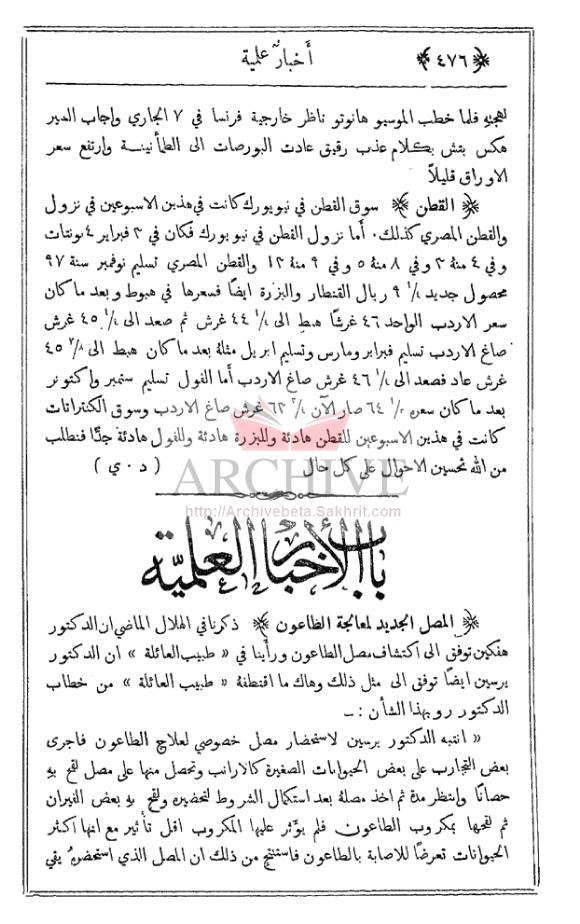 ﴿ ٤٧٦ ﴾ أخبار علمية
لهجته فلما خطب الموسيو هانوتو ناظر خارجية فرنسا في ٧ الجاري واجاب السير
هكس بتش بكلام عذب رقيق عادت البورصات الى الطأنينة وارتفع سعر
الاوراق قليلاً
﴿ القطن ﴾ سوق القطن في نيويورك كانت في هذين الاسبوعين في نزول
والقطن المصري كذلك . أما نزول القطن في نيويورك فكان في ٣ فبراير ٤ بونتات
وفي ٤ منهُ ٣ وفي ٨ منهُ ٥ وفي ٩ منهُ ١٢ والقطن المصري تسليم نوفمبر سنة ٩٧
محصول جديد ٩ ريال القنطار والبزرة ايضاً فسعرها في هبوط وبعد ما كان
سعر الاردب الواحد ٤٦ غرشاً هبط الى ٤٤ غرش ثم صعد الى ٤٥ غرش
صاغ الاردب تسليم فبراير ومارس وتسليم ابريل مثلهُ بعد ما كان هبط الى ٤٥
غرش عاد فصعد الى ٤٦ غرش صاغ الاردب أما الفول تسليم ستمبر واكتوبر
بعد ما كان سعره ٦٤ صار الآن ٦٢ غرش صاغ الاردب وسوق الكنتراتات
كانت في هذين الاسبوعين للقطن هادئة وللبزرة هادئة وللفول هادئة جدًّا فنطلب
من الله تحسين الاحوال على كل حال ( د . ي )
ARCHIVE
http://Archivebeta.Sakhrit.com
باب الأخبار العلمية
﴿ المصل الجديد لمعالجة الطاعون ﴾ ذكرنا في الهلال الماضي ان الدكتور
هفكين توفق الى اكتشاف مصل الطاعون ورأينا في « طبيب العائلة » ان الدكتور
يرسين ايضاً توفق الى مثل ذلك وهاك ما اقتطفهُ « طبيب العائلة » من خطاب
الدكتور رو بهذا الشأن : ــ
« انتبه الدكتور يرسين لاستحضار مصل خصوصي لعلاج الطاعون فاجرى
بعض التجارب على بعض الحيوانات الصغيرة كالارانب وتحصل منها على مصل لقح بهِ
حصاناً وانتظر مدة ثم اخذ مصلهُ بعد استكمال الشروط لتحضيره ولقح بهِ بعض الفيران
ثم لقحها بمكروب الطاعون فلم يؤثر عليها المكروب اقل تأثير مع انها اكثر
الحيوانات تعرضاً للاصابة بالطاعون فاستنتج من ذلك ان المصل الذي استحضرهُ يقي